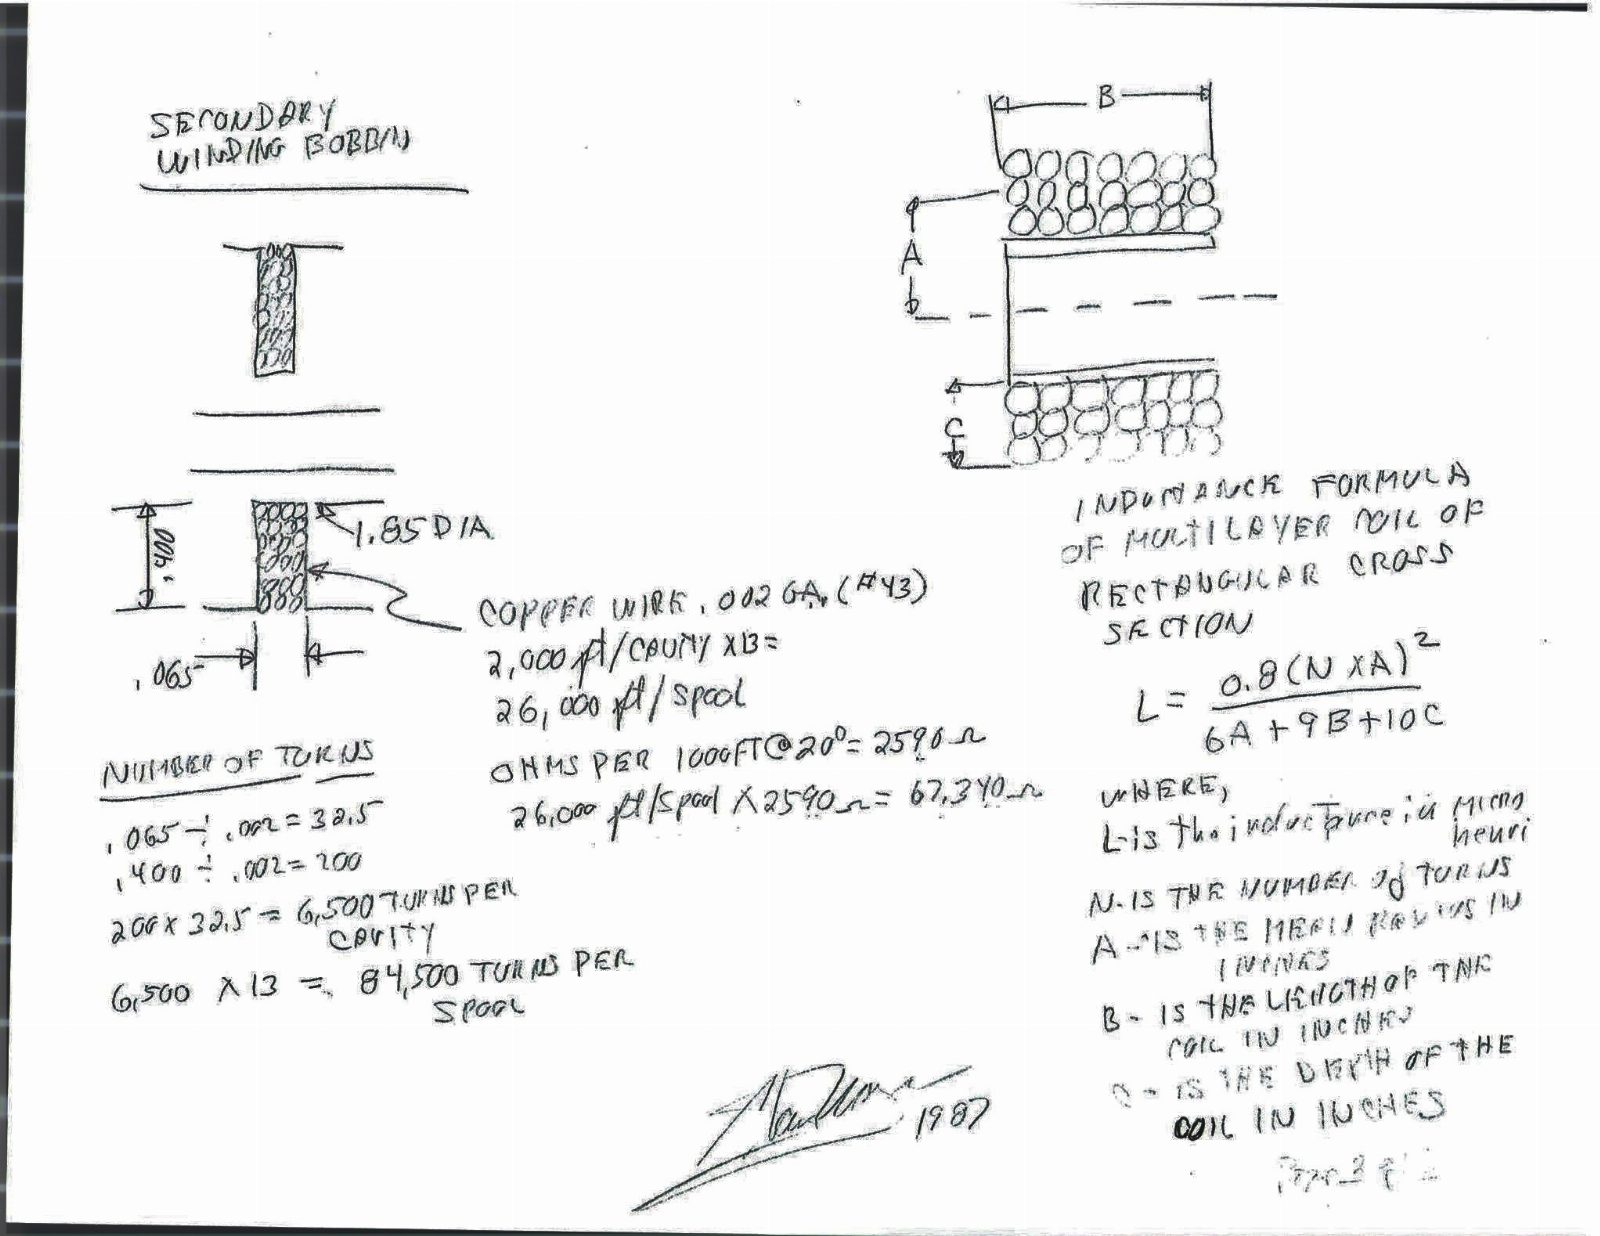 SECONDARY
WINDING BOBBIN
.400
1.85 DIA
.065
COPPER WIRE .002 GA. (#43)
2,000 ft/CAVITY X13=
26,000 ft/spool
OHMS PER 1000FT@20°=2590Ω
26,000 ft/spool X2590Ω= 67,340Ω
NUMBER OF TURNS
.065 ÷ .002 = 32.5
.400 ÷ .002 = 200
200 x 32.5 = 6,500 TURNS PER
CAVITY
6,500 X 13 = 84,500 TURNS PER
SPOOL
1987
B
A
C
INDUCTANCE FORMULA
OF MULTILAYER COIL OF
RECTANGULAR CROSS
SECTION
L = 0.8(N X A)²
6A + 9B + 10C
WHERE,
L-is the inductance in MICRO
henri
N-IS THE NUMBER of TURNS
A-IS THE MEAN RADIUS IN
INCHES
B - IS THE LENGTH OF THE
COIL IN INCHES
C - IS THE DEPTH OF THE
COIL IN INCHES